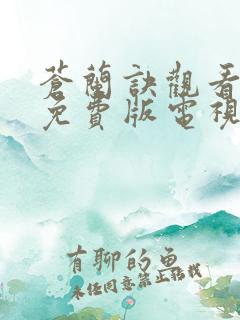 蒼蘭訣觀看
免費版電視
有聊的魚
未任同意禁止話我